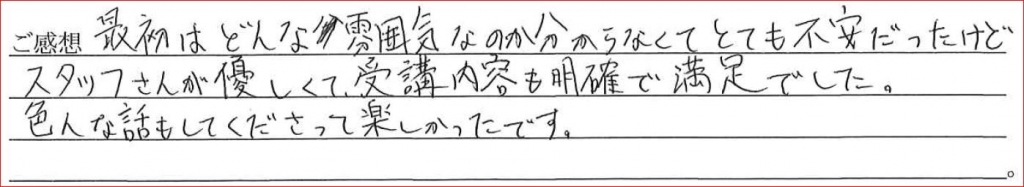 ご感想 最初はどんな雰囲気なのか分からなくてとても不安だったけど
スタッフさんが優しくて、受講内容も明確で満足でした。
色んな話もしてくださって楽しかったです。
。